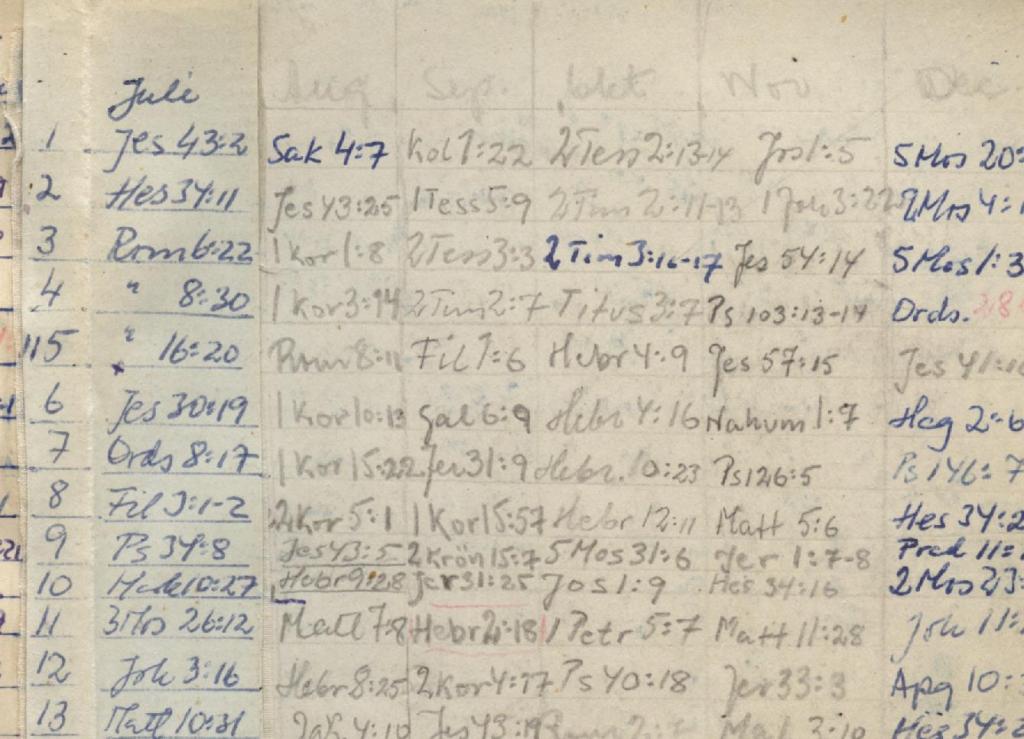 Juli Aug Sep. Okt Nov Dec.
1 Jes 43:2 Sak 4:7 Kol 1:22 2 Tess 2:13-14 Jos 1:5 5 Mos 20:
2 Hes 34:11 Jes 43:25 1 Tess 5:9 2 Tim 2:11-13 1 Joh 3:22 2 Mos 4:1
3 Rom 6:22 1 Kor 1:8 2 Tess 3:3 2 Tim 3:16-17 Jes 54:14 5 Mos 1:3
4 " 8:30 1 Kor 3:14 2 Tim 2:7 Titus 3:7 Ps 103:13-14 Ords.
5 " 16:20 Rom 8:11 Fil 1:6 Hebr 4:9 Jes 57:15 Jes 41:10
6 Jes 30:19 1 Kor 10:13 Gal 6:9 Hebr 4:16 Nahum 1:7 Hag 2:6
7 Ords 8:17 1 Kor 15:22 Jer 31:9 Hebr. 10:23 Ps 126:5 Ps 146:7
8 Fil 3:1-2 2 Kor 5:1 1 Kor 15:57 Hebr 12:11 Matt 5:6 Hes 34:2
9 Ps 34:8 Jes 43:5 2 Krön 15:7 5 Mos 31:6 Jer 1:7-8 Pred 11:
10 Mark 10:27 Hebr 9:28 Jer 31:25 Jos 1:9 Hes 34:16 2 Mos 23:
11 3 Mos 26:12 Matt 7:8 Hebr 2:18 1 Petr 5:7 Matt 11:28 Joh 11:
12 Joh 3:16 Hebr 8:25 2 Kor 4:17 Ps 40:18 Jer 33:3 Apg 10:
13 Matt 10:31 Jak 4:10 Jes 43:19 Mal 3:10 Hes 34:2